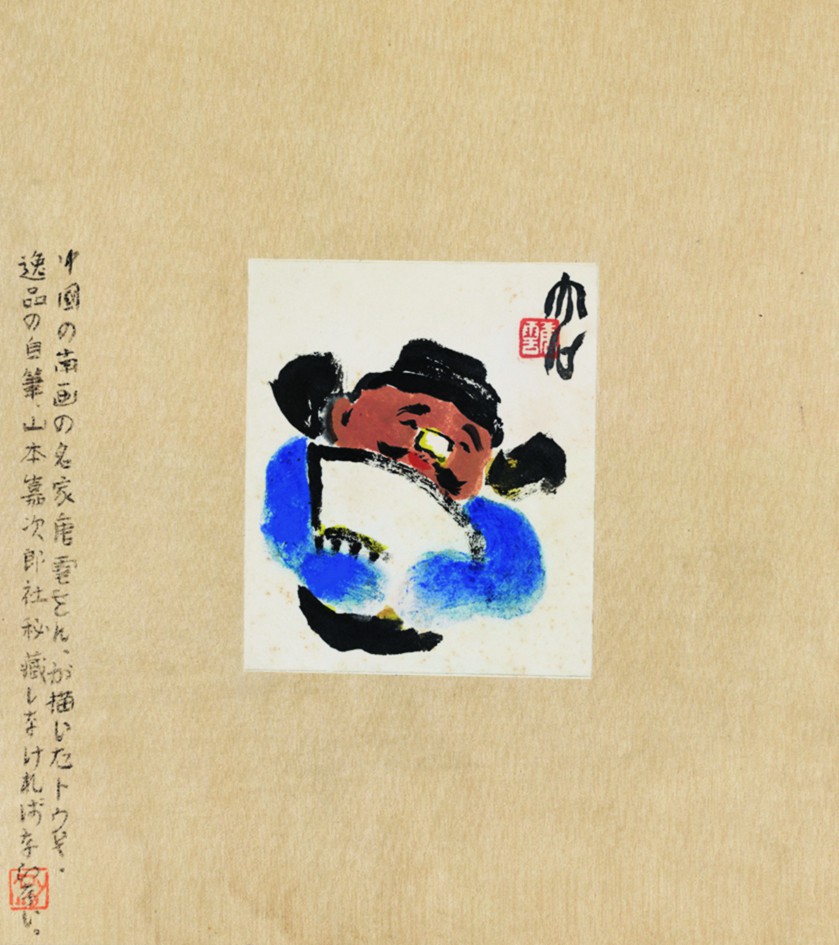 大石
唐雲
中國の南画の名家唐雲さん、が描いたトウ
逸品の自筆、山本嘉次郎社秘蔵しなければならない。